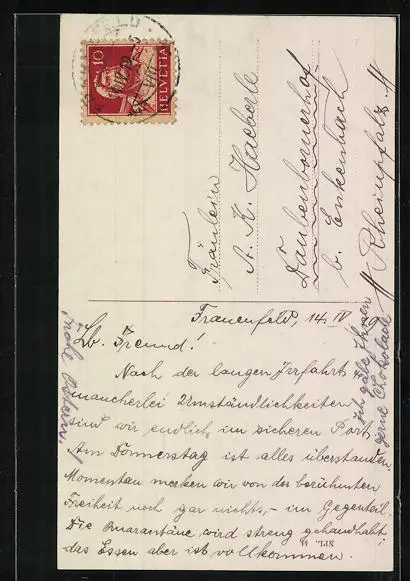 10
HELVETIA
Fräulein
A. K. Haeberle
Daubenbornerhof
b. Enkenbach
Rheinpfalz
Frauenfeld, 14 IV 19
Lb. Freund!
Nach der langen Irrfahrt
mancherlei Umständlichkeiten
sind wir endlich im sicheren Port.
Am Donnerstag ist alles überstanden,
Momentan merken wir von der berühmten
Freiheit noch gar nichts, – im Gegenteil.
Die Quarantäne wird streng gehandhabt,
das Essen aber ist vollkommen.
Ich gäbe Ihnen
gerne Chokolade
frohe Ostern!